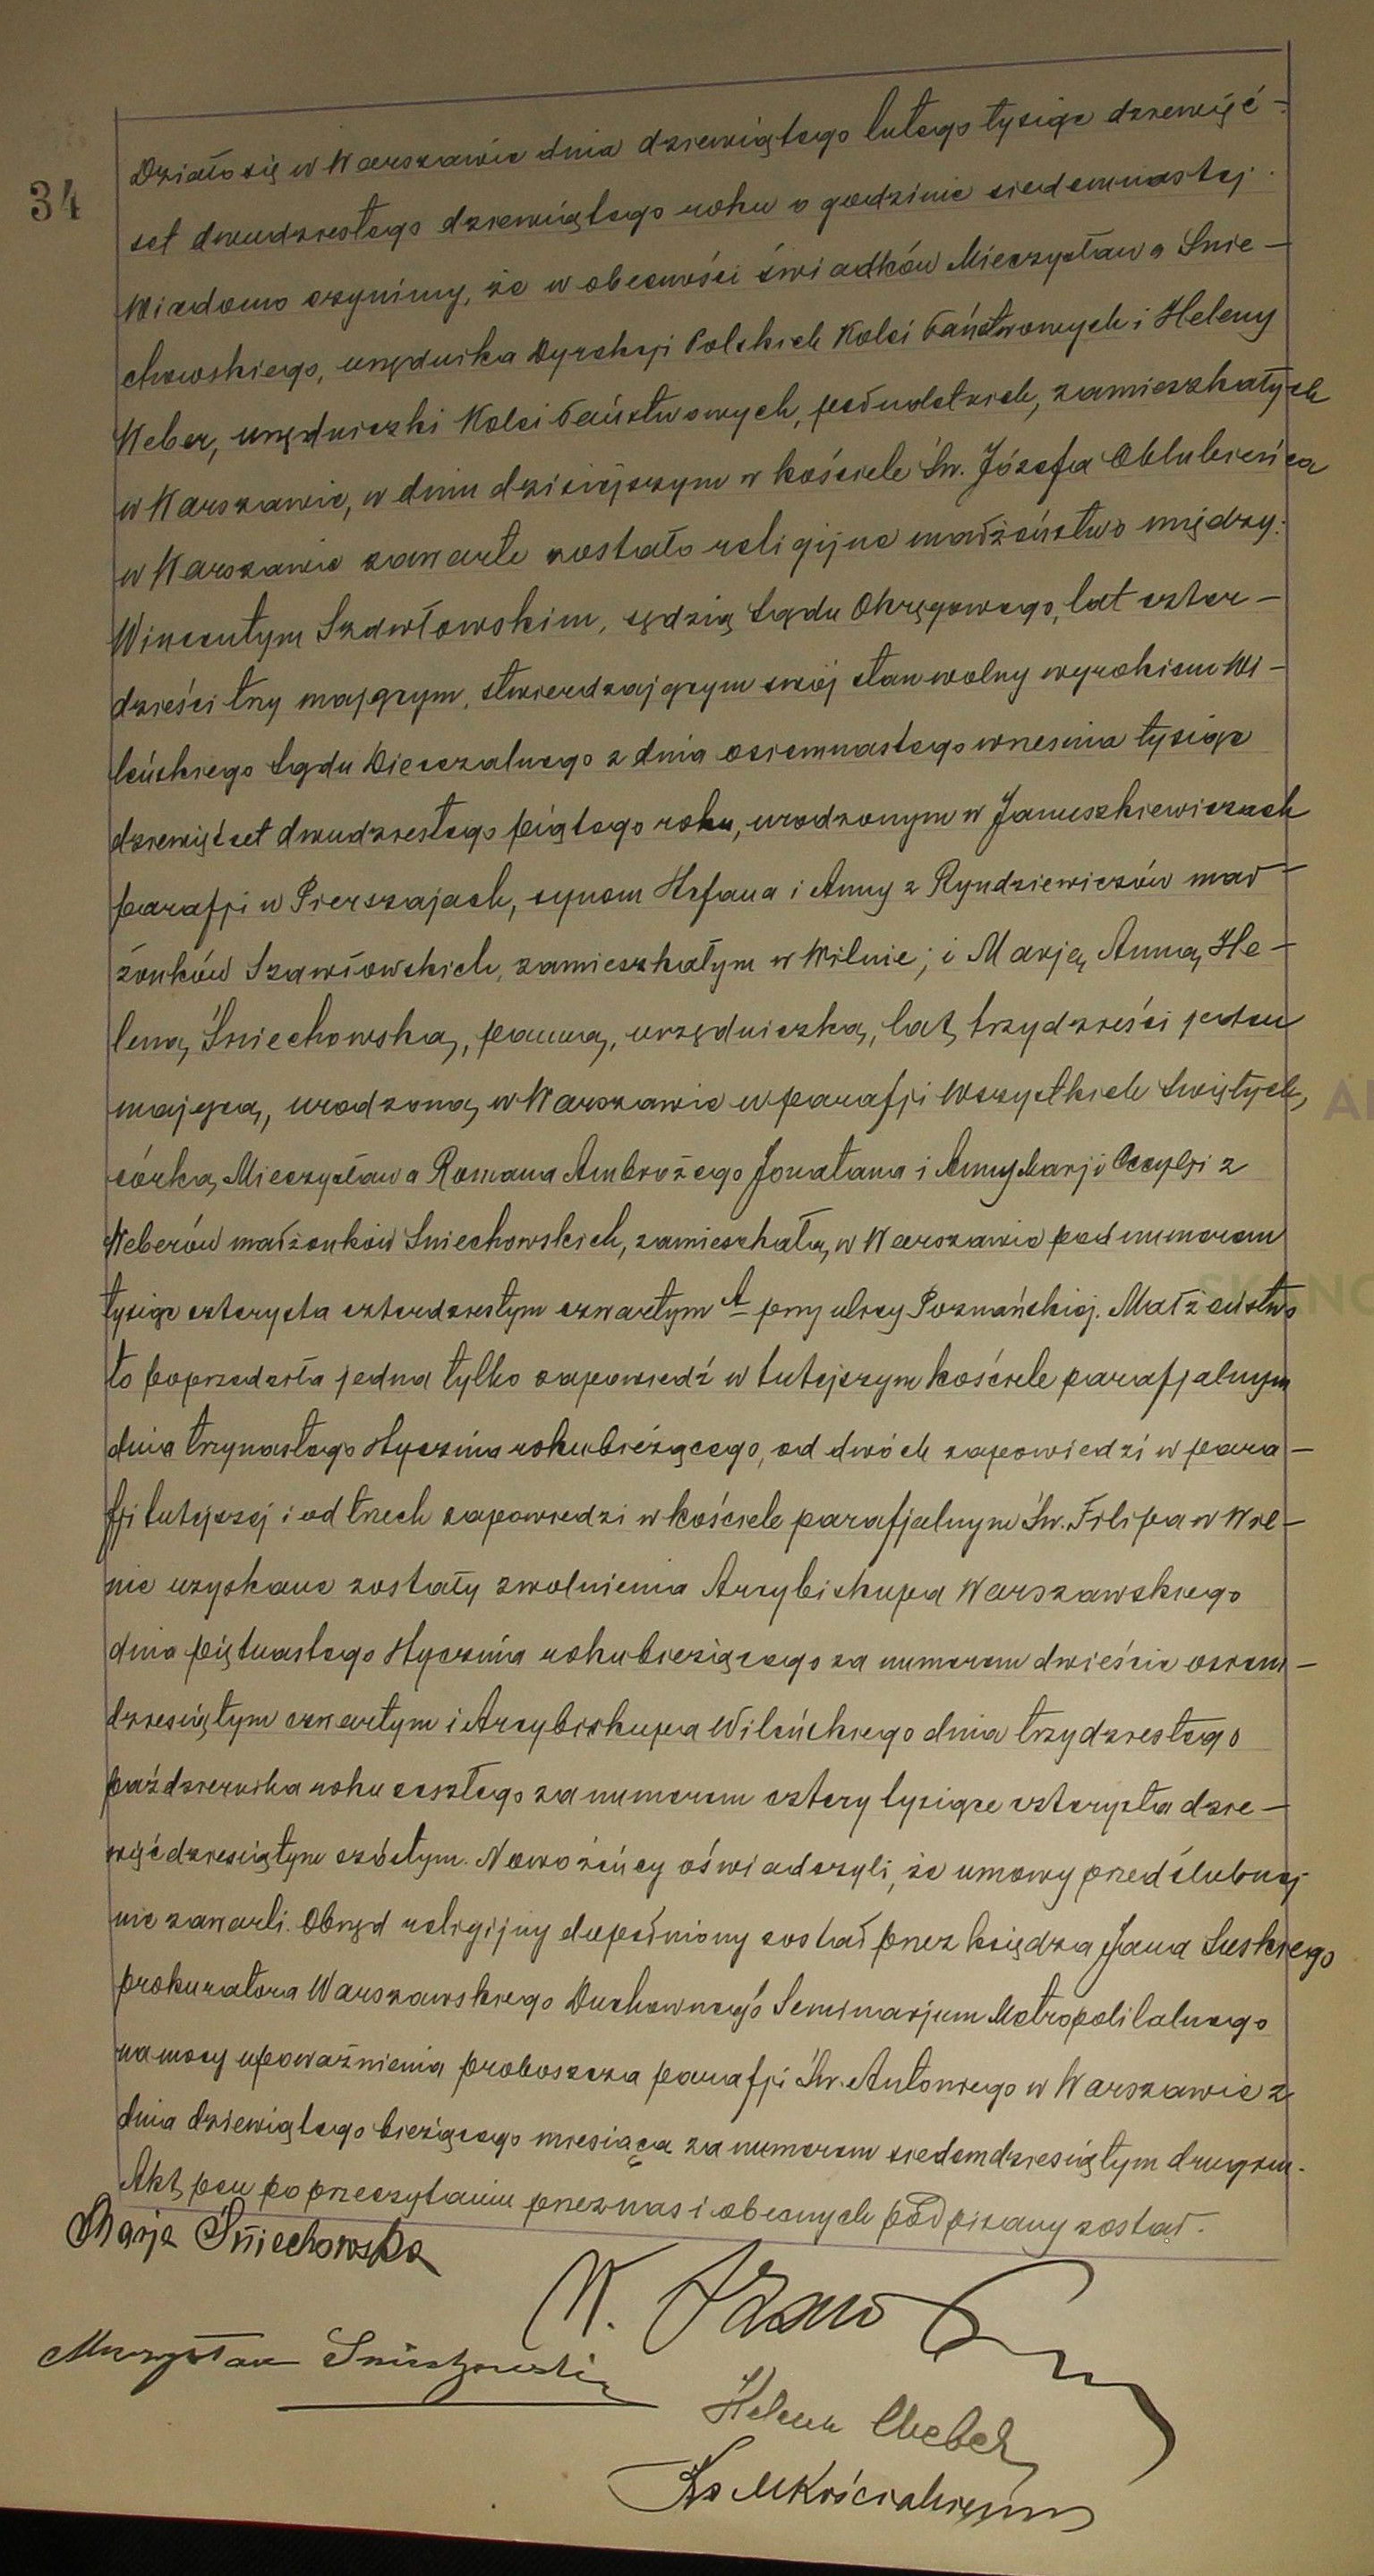 34
Działo się w Warszawie dnia dziewiątego lutego tysiąc dziewięć-
set dwudziestego dziewiątego roku o godzinie siedemnastej.
Wiadomo czynimy, że w obecności świadków Mieczysława Śnie-
chowskiego, urzędnika Dyrekcji Polskich Kolei Państwowych i Heleny
Weber, urzędniczki Kolei Państwowych, pełnoletnich, zamieszkałych
w Warszawie, w dniu dzisiejszym w kościele Św. Józefa Oblubieńca
w Warszawie zawarte zostało religijne małżeństwo między:
Wincentym Szawłowskim, sędzią Sądu Okręgowego, lat czter-
dzieści trzy mającym, stwierdzającym swój stan wolny wyrokiem Wi-
leńskiego Sądu Diecezalnego z dnia osiemnastego września tysiąc
dziewięćset dwudziestego piątego roku, urodzonym w Januszkiewiczach
parafji w Pierszajach, synem Stefana i Anny z Ryndziewiczów mał-
żonków Szawłowskich, zamieszkałym w Wilnie; i Marją Anną He-
leną Śniechowską, panną, urzędniczką, lat trzydzieści jeden
mającą, urodzoną w Warszawie w parafji Wszystkich Świętych,
córką Mieczysława Romana Ambrożego Jonatana i Anny Marji Cecylji z
Weberów małżonków Śniechowskich, zamieszkałą w Warszawie pod numerem
tysiąc czterysta czterdziestym czwartym A przy ulicy Poznańskiej. Małżeństwo
to poprzedziła jedna tylko zapowiedź w tutejszym kościele parafjalnym
dnia trzynastego stycznia roku bieżącego, od dwóch zapowiedzi w para-
fji tutejszej i od trzech zapowiedzi w kościele parafjalnym Św. Filipa w Wil-
nie uzyskane zostały zwolnienia Arcybiskupa Warszawskiego
dnia piętnastego stycznia roku bieżącego za numerem dwieście osiem-
dziesiątym czwartym i Arcybiskupa Wileńskiego dnia trzydziestego
października roku zeszłego za numerem cztery tysiące czterysta dzie-
więćdziesiątym szóstym. Nowożeńcy oświadczyli, że umowy przedślubnej
nie zawarli. Obrzęd religijny dopełniony został przez księdza Jana Suskiego
prokuratora Warszawskiego Duchownego Seminarjum Metropolitalnego
na mocy upoważnienia proboszcza parafji Św. Antoniego w Warszawie z
dnia dziewiątego bieżącego miesiąca za numerem siedemdziesiątym drugim.
Akt ten po przeczytaniu przez nas i obecnych podpisany został.
Marja Śniechowska
W. Szaw
Mieczysław Śniechowski
Helena Weber
Ks